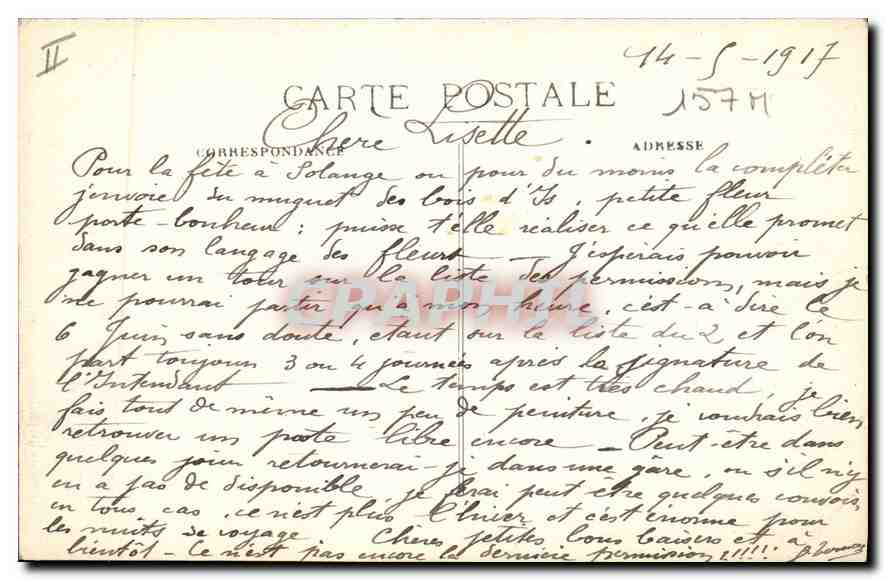 II
14-5-1917
CARTE POSTALE
157 M
Chere Lisette.
CORRESPONDANCE
ADRESSE
Pour la fête à Solange ou pour du moins la compléter
j'envoie du muguet des bois d'Is, petite fleur
porte-bonheur ; puisse t'elle réaliser ce qu'elle promet
dans son langage des fleurs — J'espérais pouvoir
gagner un tour sur la liste des permission, mais je
ne pourrai partir qu'à mon heure, c'est-à dire le
6 Juin sans doute, étant sur la liste du 2 et l'on
part toujours 3 ou 4 journées après la signature de
l'Intendant — Le temps est très chaud, je
fais tout de même un peu de peinture, je voudrais bien
retrouver un poste libre encore — Peut-être dans
quelques jours retournerai-je dans une gare, ou s'il n'y
en a pas de disponible, je ferai peut être quelques convois,
en tous cas, ce n'est plus l'hiver et c'est énorme pour
les nuits de voyage Chères petites bons baisers et à
bientôt - Ce n'est pas encore la dernière permission !!!!!
CPAPHIL